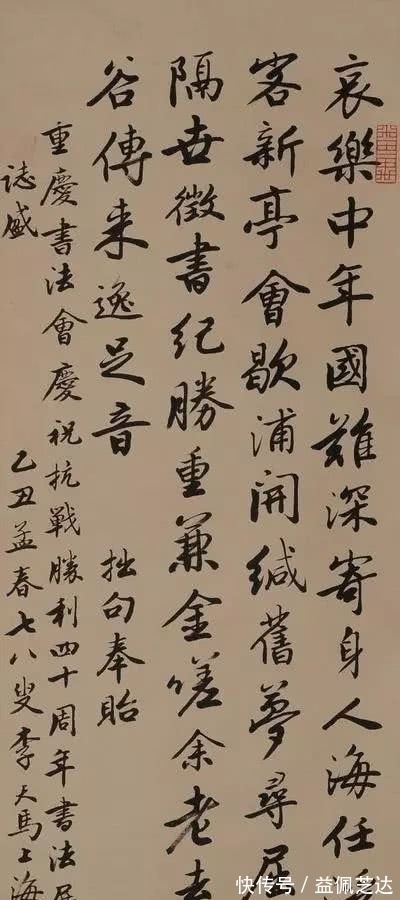 哀樂中年國難深寄身人海任
客新亭會歇浦開緘舊夢尋居
隔世徵書紀勝重兼金嗟余老去
谷傳来逸足音　拙句奉貽
重慶書法會慶祝抗戰勝利四十周年書法展
誌盛
乙丑孟春七八叟李天馬上海
快传号／益佩芝达